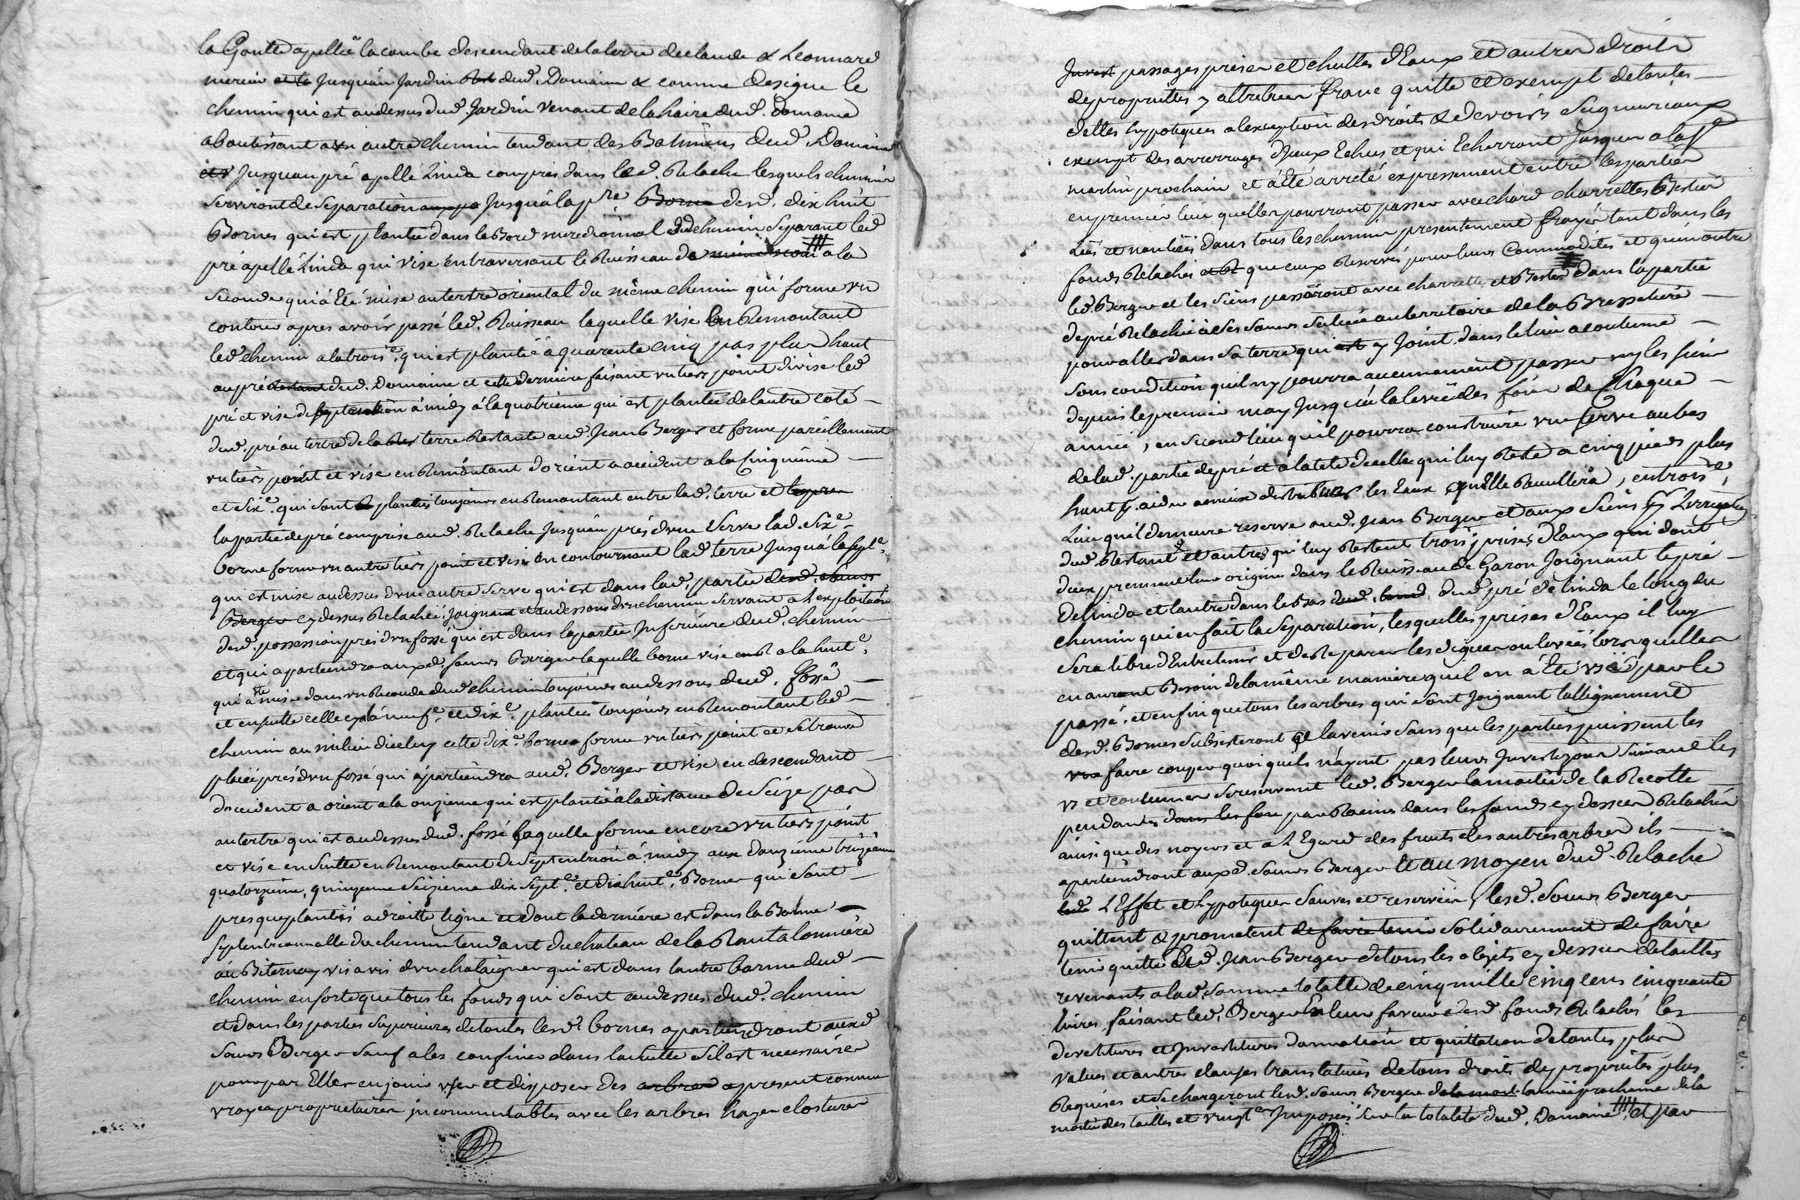 la Goutte apellée la combe descendant de la terre de claude & Leonnard
mercier et la Jusqu'au Jardin dud. Domaine & comme designe le
chemin qui est audessus dud. Jardin venant de la haire dud. Domaine
aboutissant a un autre chemin tendant des Batiments dud. Domaine
Jusqu'au pré apellé Linda compris dans led. Relache lesquels chemins
serviront de separation Jusqu'à la pre. Borne desd. dix huit
Bornes qui est plantée dans le Bord meredional dud chemin separant led
pré apellé Linda qui vise en traversant le Ruisseau de a la
seconde qui a été mise au tertre oriental du même chemin qui forme un
contour apres avoir passé led. Ruisseau laquelle vise en Remontant
led. chemin a la trois.e qui est plantée à quarente cinq pas plus haut
au pré dud. Domaine et cette derniere faisant un tiers point divise led
pré et vise de septentrion à midy à la quatrieme qui est plantée de l'autre coté
dud. pré au tertre de la terre Restante aud. Jean Berger et forme pareillement
un tiers point et vise en Remontant d'orient a occident a la Cinquieme
et six.e qui sont plantées toujours en Remontant entre lad. terre et
la partie de pré comprise aud. Relache Jusqu'au près d'une Serve lad. Six.e
borne forme un autre tiers point et vise en contournant lad. terre Jusqu'à la sept.e
qui est mise audessus d'une autre Serve qui est dans lad. partie
Berger cy dessus Relachée, Joignant et audessous d'un chemin servant a l'exploitation
dud. possession près d'un fossé qui est dans la partie Inferieure dud. chemin
et qui apartiendra auxd. sœurs Berger laquelle borne vise a la huit.e
qui a été mise dans un Recoude dud. chemin toujours audessous dud. fossé
et ensuite celle cy à neuf.e et dix.e plantées toujours en Remontant led
chemin au milieu diceluy cette dix.e borne forme un tiers point et se trouve
placée près d'un fossé qui apartiendra aud. Berger et vise en descendant
d'occident a orient a la onzieme qui est plantée à la distance de Seize pas
au tertre qui est audessus dud. fossé laquelle forme encore un tiers point
et vise en suitte en Remontant de septentrion à midy aux douzieme treizieme
quatorzieme, quinzieme seizieme dix sept.e et dix huit.e Bornes qui sont
presque plantées a droitte ligne et dont la derniere est dans la Borne
septentrionnalle du chemin tendant du chateau de la Rontalonniere
au Biternay vis a vis d'un chataigner qui est dans l'autre borne dud
chemin en sorte que tous les fonds qui sont audessus dud. chemin
et dans les parties superieures de toutes lesd. bornes apartiendront auxd
sœurs Berger sauf a les confiner dans la suitte s'il est necessaire
pour par Elles en jouir user et disposer des apresent comme
vrayes proprietaires incommutables avec les arbres hayes clostures
passages prises et chuttes d'Eaux et autres droits
de proprietés y attribués franc quitte et exempt de toutes
dettes hypoteques a l'exception des droits & devoirs seigneuriaux
exempt des arrerages d'Iceux Echus et qui Echerront Jusques a la St
martin prochain et a été arreté expressement entre les parties
en premier lieu quelles pourront passer avec chard charrettes Bestier
Liés et non liés dans tous les chemins presentement frayés tant dans les
fonds Relachés que ceux Reservés pour leurs commodités et qu'en outre
led. Berger et les siens passeront avec charrettes et Bestier dans la partie
de pré Relachée à ses sœurs située au territoire de la Bressetiere
pour aller dans sa terre qui y Joint dans le lieu acoutumé
sous condition qu'il ny pourra aucunement passer ny les siens
depuis le premier may Jusqu'à la levée des foins de Chaque
année, en second lieu qu'il pourra construire une serve au bas
de lad. partie de pré et a la tete de celle qui luy Reste a cinq pieds plus
haut p. aider a mieux distribuer les Eaux qu'elle Recuillera, en trois.e
Lieu qu'il demeure reservé aud. Jean Berger et aux siens p. l'irrigation
dud. Restant et autres qui luy Restent trois prises d'Eaux qui dont
deux prennent leur origine dans le Ruisseau de Garon Joignant le pré
de linda et l'autre dans le Bas dud. pré de linda le long du
chemin qui en fait la separation, lesquelles prises d'Eaux il luy
sera libre d'Entretenir et de Reparer les digues ou levées lorsquelles
en auront Besoin de la même maniere qu'il en a été usé par le
passé, et enfin que tous les arbres qui sont Joignant l'allignement
desd. Bornes subsisteront a l'avenir sans que les parties puissent les
faire couper quoi quels n'ayent pas leurs Investizon suivant les
us et coutumes se reservant led. Berger la moitié de la Recolte
pendante par Racine dans les fonds cy dessus Relachés
ainsi que des noyers et a l'Egard des fruits des autres arbres ils
apartiendront auxd. sœurs Berger et au moyen dud. Relache
l'Effet et hypoteque sauves et reservées, lesd. sœurs Berger
quittent & promettent solidairement de faire
tenir quitte led. Jean Berger de tous les objets cy dessus detaillés
revenants a lad. somme totalle de cinq mille cinq cens cinquante
livres faisant led. Berger En leur faveur desd. fonds Relachés les
devestitures et Investitures donnation et quittation de toutes plus
values et autres clauses translatives de tous droits de proprietés plus
Requises et se chargeront lesd. sœurs Berger l'année prochaine de la
moitié des tailles et vingt.e Imposés sur la totalité dud. Domaine, et par